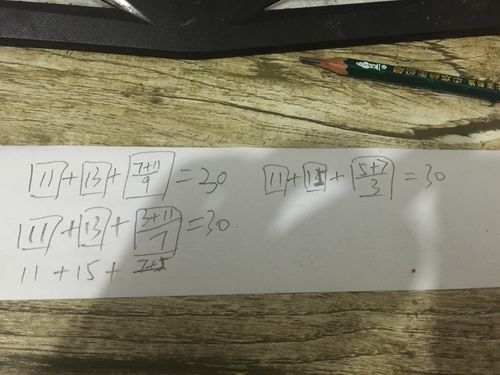 11 + 13 + (7+11)/9 = 30
11 + 15 + (5+7)/3 = 30
11 + 13 + (3+11)/7 = 30
11 + 15 +